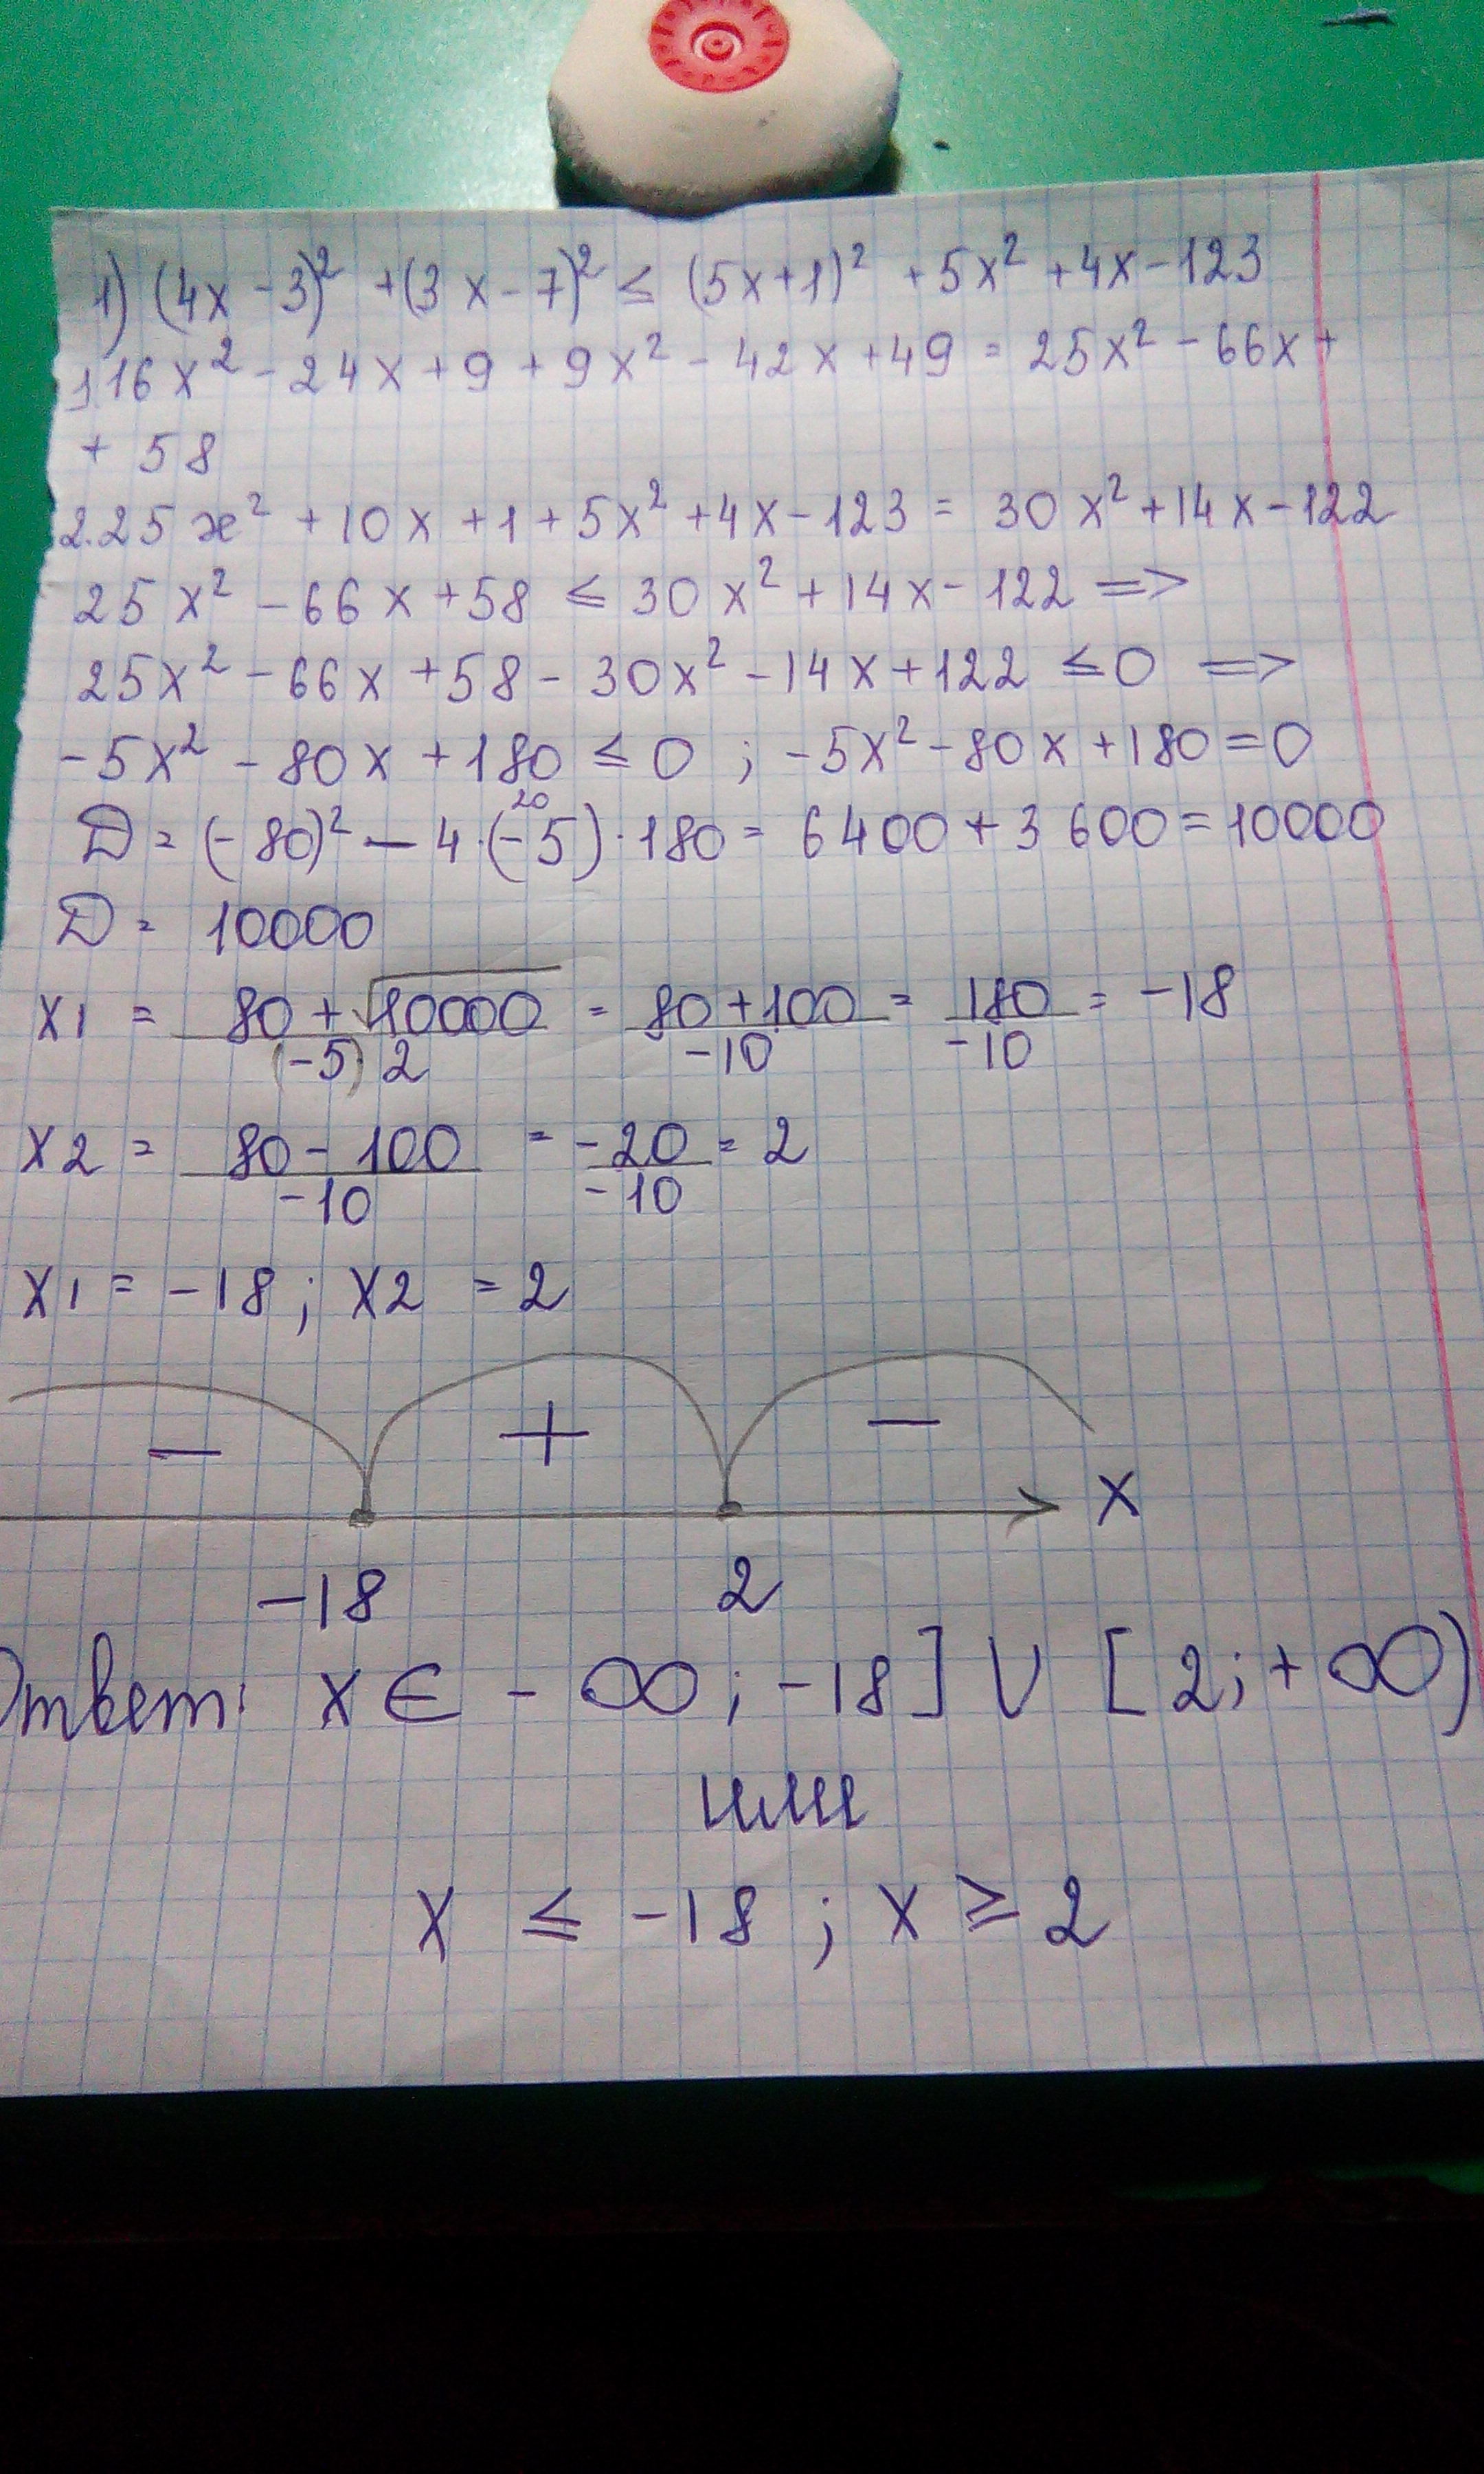 1) (4x - 3)² + (3x - 7)² ≤ (5x+1)² + 5x² + 4x - 123
1. 16x² - 24x + 9 + 9x² - 42x + 49 = 25x² - 66x +
+ 58
2. 25x² + 10x + 1 + 5x² + 4x - 123 = 30x² + 14x - 122
25x² - 66x + 58 ≤ 30x² + 14x - 122 =>
25x² - 66x + 58 - 30x² - 14x + 122 ≤ 0 =>
-5x² - 80x + 180 ≤ 0 ; -5x² - 80x + 180 = 0
20
D = (-80)² - 4·(-5)·180 = 6400 + 3600 = 10000
D = 10000
x1 = (80 + √10000)/((-5)·2) = (80+100)/(-10) = 180/(-10) = -18
x2 = (80 - 100)/(-10) = (-20)/(-10) = 2
x1 = -18 ; x2 = 2
- + -
x
-18 2
Ответ: x ∈ - ∞ ; -18] U [2 ; + ∞)
или
x ≤ -18 ; x ≥ 2